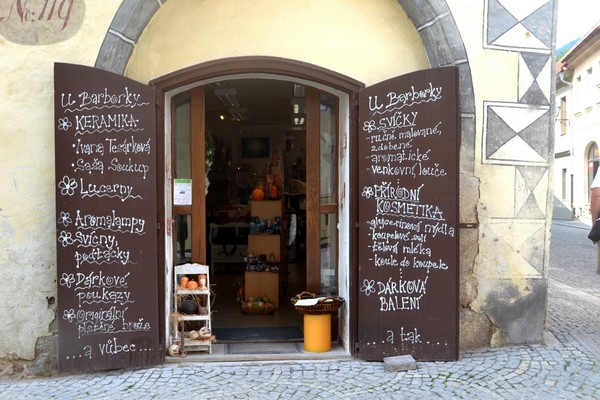 No: 119
U Barborky
KERAMIKA
• Ivana Tesárková
• Saša Soukup
Lucerny
Aromalampy
Svícny,
pošťácky
Dárkové
poukazy
Originální
plátěné brože
... a vůbec ...
U Barborky
SVÍČKY
- ručně malované,
zdobené
- aromatické
- venkovní, louče
PŘÍRODNÍ
KOSMETIKA
- glycerinová mýdla
- koupelové soli
- tělová mléka
- koule do koupele
DÁRKOVÁ
BALENÍ
... a tak ...